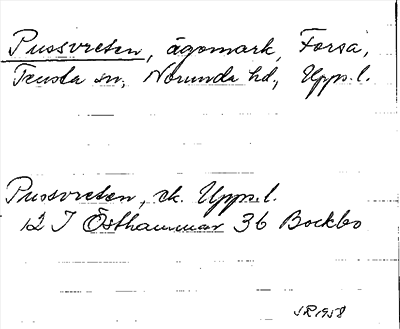 Pussvreten, ägomark, Forsa,
Tensta sn, Norunda hd, Upps. l.
Pussvreten, ek. Upps. l.
12 I Östhammar 36 Bockbo
SR 1958